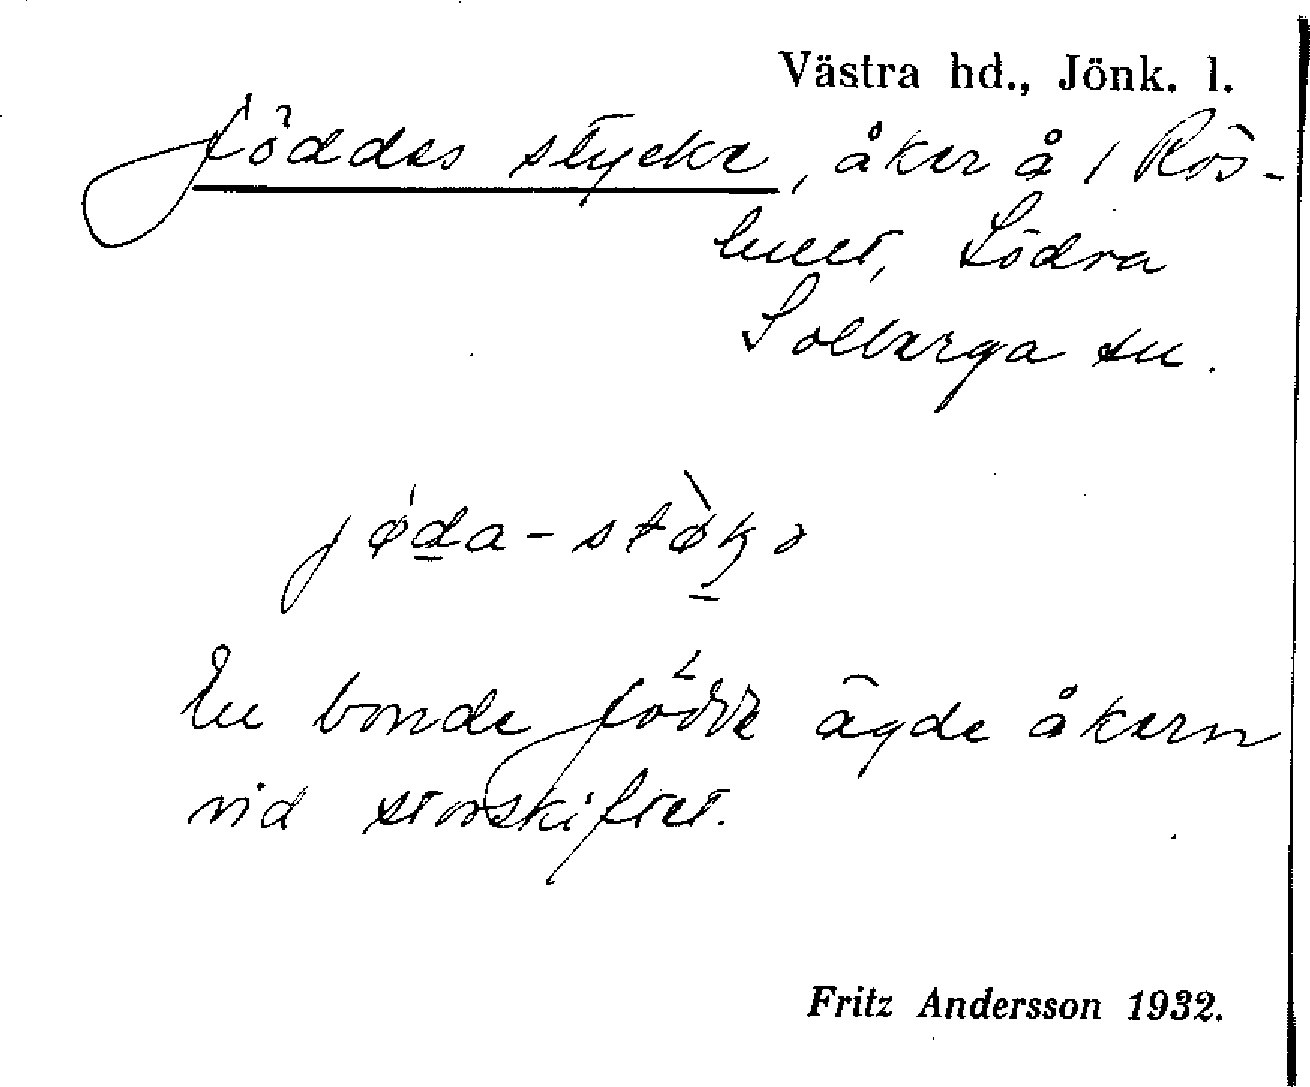 Västra hd., Jönk. l.
Jöddes stycke, åker å / Rös-
lund, Södra
Solberga sn.
jøda-støkə
En bonde Jödde ägde åkern
vid storskiftet.
Fritz Andersson 1932.